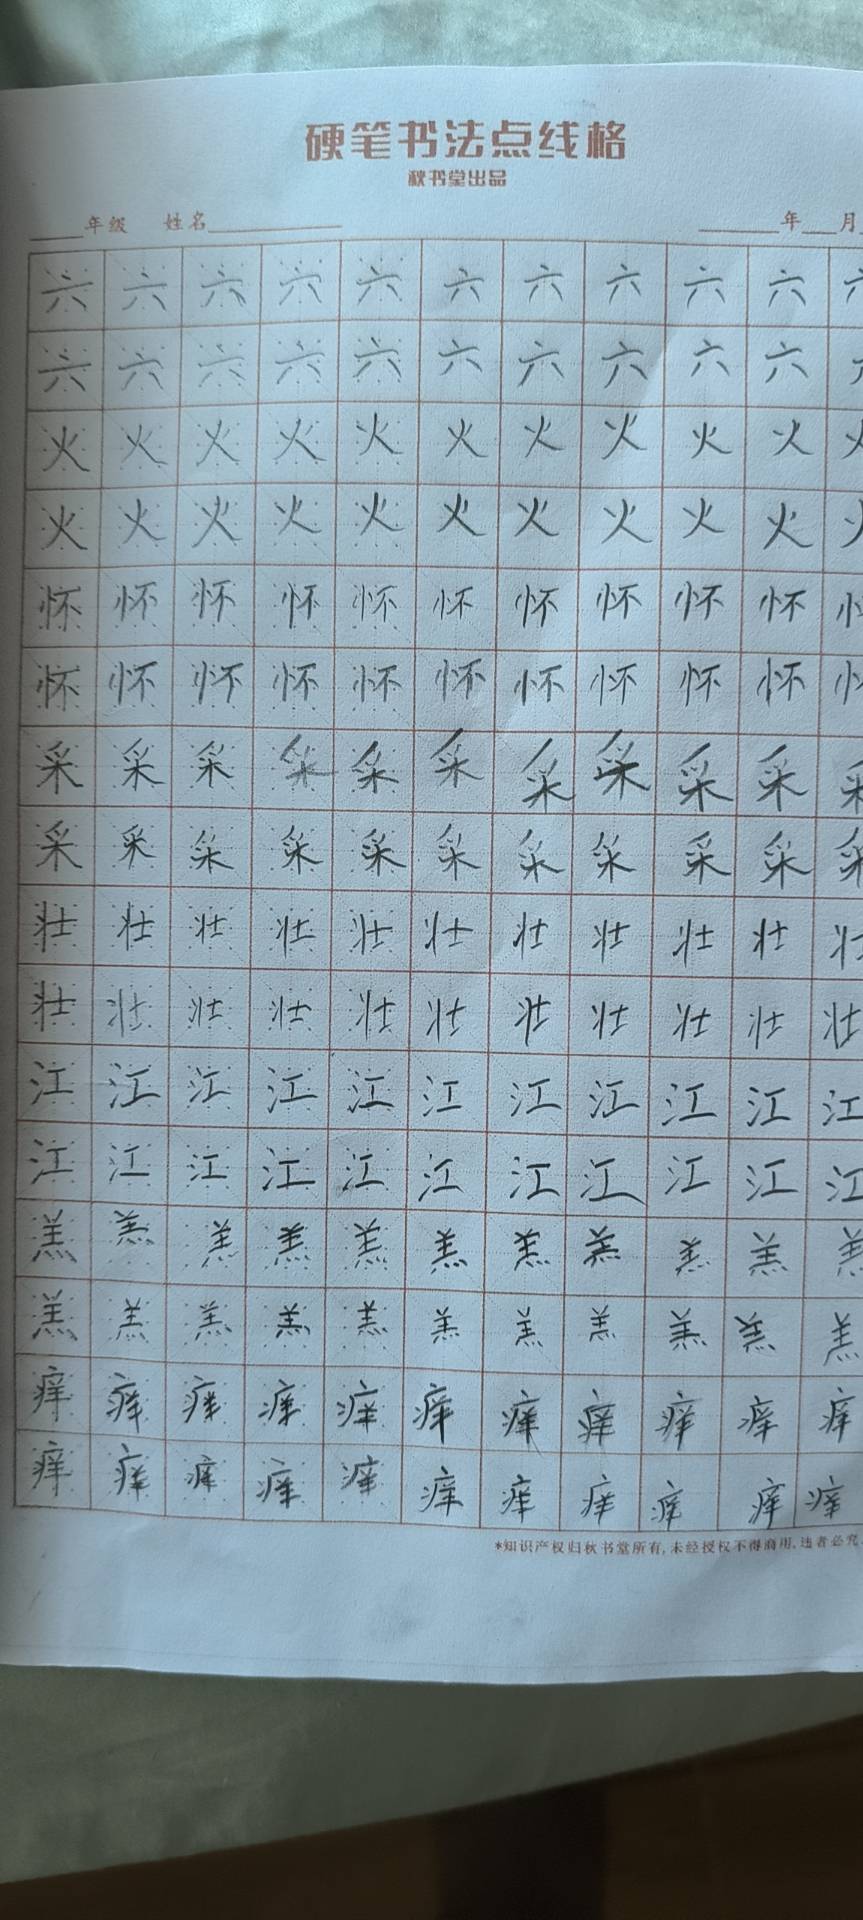 硬笔书法点线格
秋书堂出品
年级 姓名 年 月
六 六 六 六 六 六 六 六 六 六 六
六 六 六 六 六 六 六 六 六 六 六
火 火 火 火 火 火 火 火 火 火 火
火 火 火 火 火 火 火 火 火 火 火
怀 怀 怀 怀 怀 怀 怀 怀 怀 怀 怀
怀 怀 怀 怀 怀 怀 怀 怀 怀 怀 怀
采 采 采 采 采 采 采 采 采 采 采
采 采 采 采 采 采 采 采 采 采 采
壮 壮 壮 壮 壮 壮 壮 壮 壮 壮 壮
壮 壮 壮 壮 壮 壮 壮 壮 壮 壮 壮
江 江 江 江 江 江 江 江 江 江 江
江 江 江 江 江 江 江 江 江 江 江
羔 羔 羔 羔 羔 羔 羔 羔 羔 羔 羔
羔 羔 羔 羔 羔 羔 羔 羔 羔 羔 羔
痒 痒 痒 痒 痒 痒 痒 痒 痒 痒 痒
痒 痒 痒 痒 痒 痒 痒 痒 痒 痒 痒
*知识产权归秋书堂所有,未经授权不得商用,违者必究